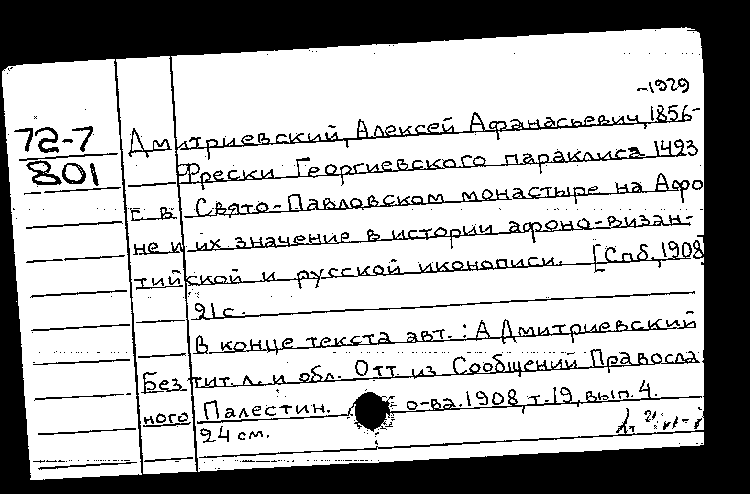 -1929
72-7
801
Дмитриевский, Алексей Афанасьевич, 1856-
Фрески Георгиевского параклиса 1423
г. в Свято-Павловском монастыре на Афо
не и их значение в истории афоно-визан-
тийской и русской иконописи. [Спб., 1908]
21 с.
В конце текста авт.: А Дмитриевский
Без тит. л. и обл. Отт. из Сообщений Правосла
ного Палестин. о-ва. 1908, т. 19, вып. 4.
24 см.